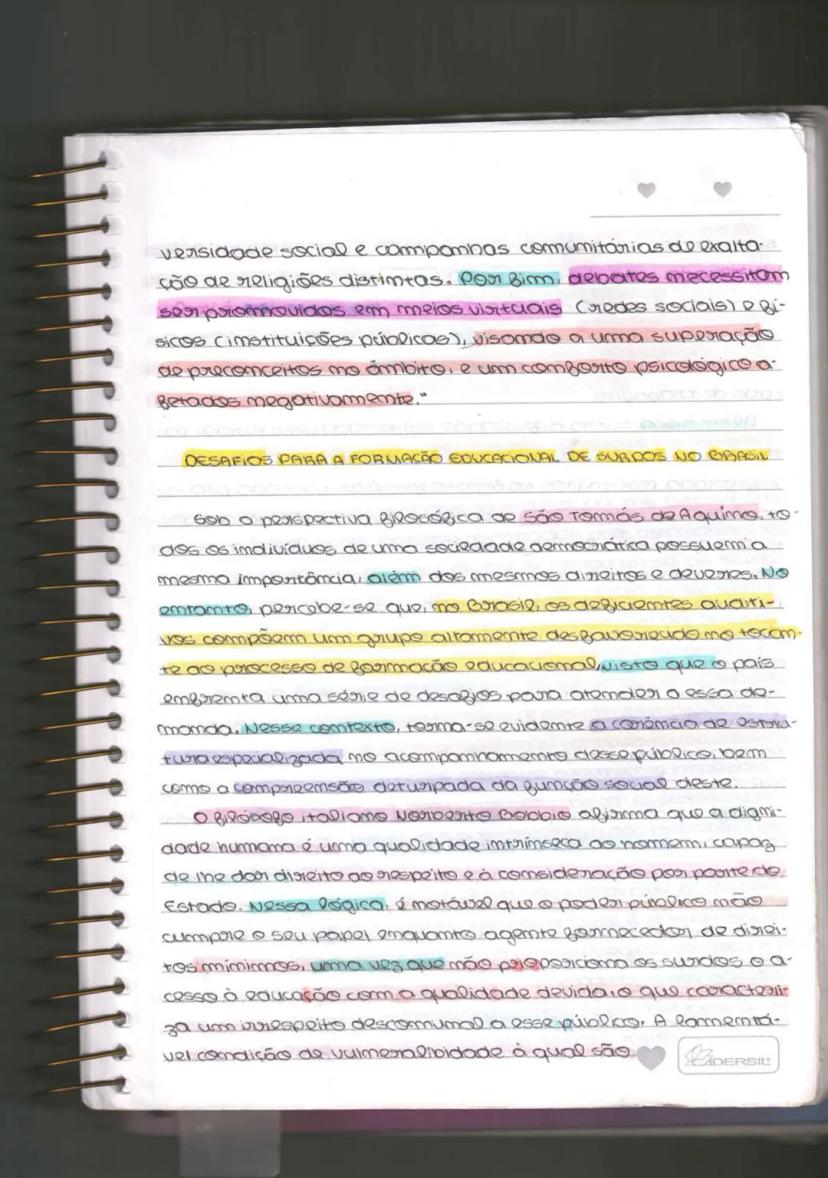 versidade social e campanhas comunitárias de exalta-
ção de religiões distintas. Por fim, debates necessitam
ser promovidos em meios virtuais (redes sociais) e fí-
sicos (instituições públicas), visando a uma superação
de preconceitos no âmbito, e um conforto psicológico a-
fetados negativamente."
DESAFIOS PARA A FORMAÇÃO EDUCACIONAL DE SURDOS NO BRASIL
Sob a perspectiva filosófica de São Tomás de Aquino, to-
dos os indivíduos de uma sociedade democrática possuem a
mesma importância, além dos mesmos direitos e deveres. No
entanto, percebe-se que, no Brasil, os deficientes auditi-
vos compõem um grupo altamente desfavorecido no tocan-
te ao processo de formação educacional, visto que o país
enfrenta uma série de desafios para atender a essa de-
manda. Nesse contexto, torna-se evidente a carência de estru-
tura especializada no acompanhamento desse público, bem
como a compreensão deturpada da função social deste.
O filósofo italiano Norberto Bobbio afirma que a digni-
dade humana é uma qualidade intrínseca ao homem, capaz
de lhe dar direito ao respeito e à consideração por parte do
Estado. Nessa lógica, é notável que o poder público não
cumpre o seu papel enquanto agente fornecedor de direi-
tos mínimos, uma vez que não proporciona os surdos o a-
cesso à educação com a qualidade devida, o que caracteri-
za um irrespeito descomunal a esse público. A lamentá-
vel condição de vulneralibidade à qual são
CADERSIL